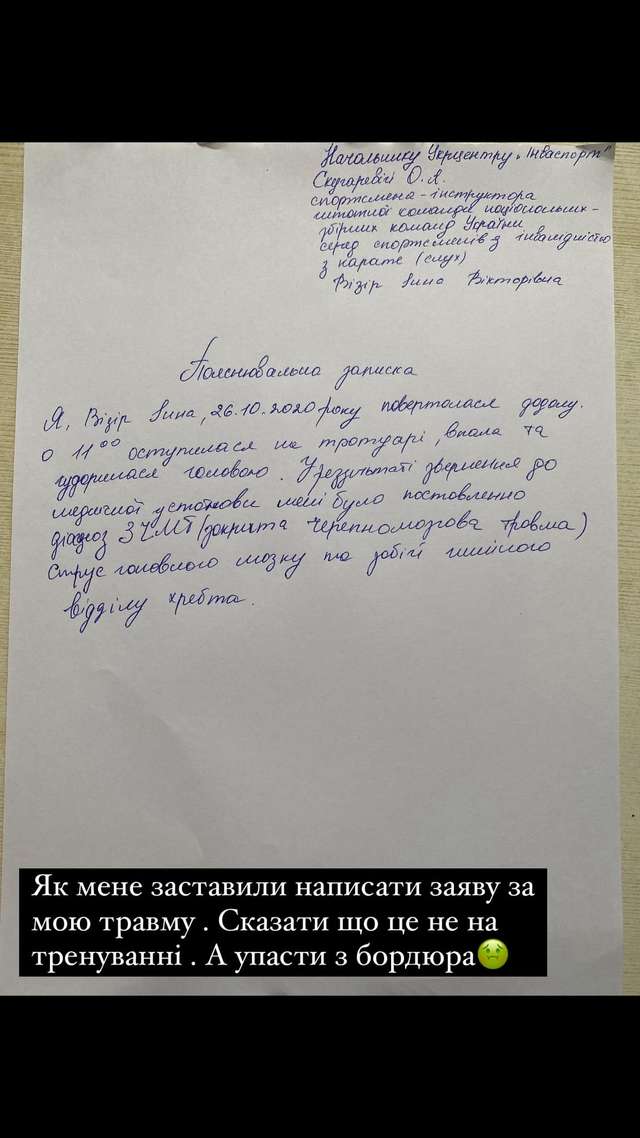 Начальнику Укрцентру „Інваспорт"
Скугаревій О. А.
спортсмена - інструктора
штатної команди національних -
збірних команд України
серед спортсменів з інвалідністю
з карате (слух)
Візір Інна Вікторівна
Пояснювальна записка
Я, Візір Інна, 26.10.2020 року поверталася додому.
о 11⁰⁰ оступилася на тротуарі, впала та
ударилася головою. У результаті звернення до
медичної установи мені було поставленно
діагноз ЗЧМТ (закрита черепномозгова травма)
Струс головного мозку та забій шийного
відділу хребта.
Як мене заставили написати заяву за
мою травму . Сказати що це не на
тренуванні . А упасти з бордюра🤢